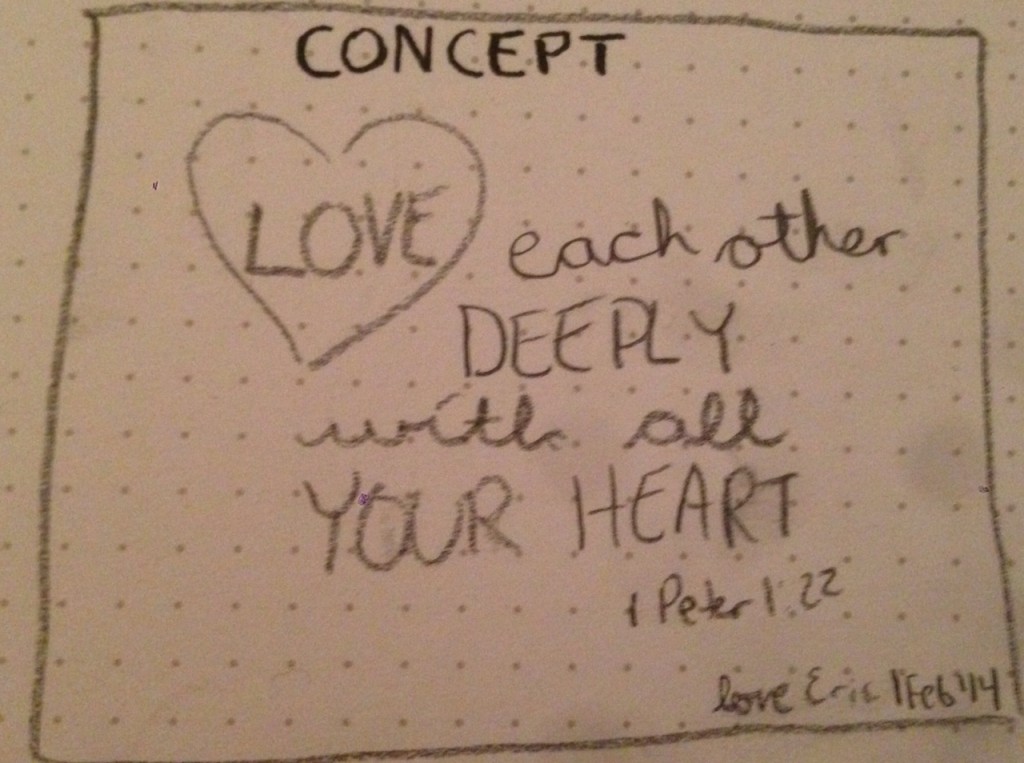 CONCEPT
LOVE each other
DEEPLY
with all
YOUR HEART
1 Peter 1:22
love Eric 1 Feb '14